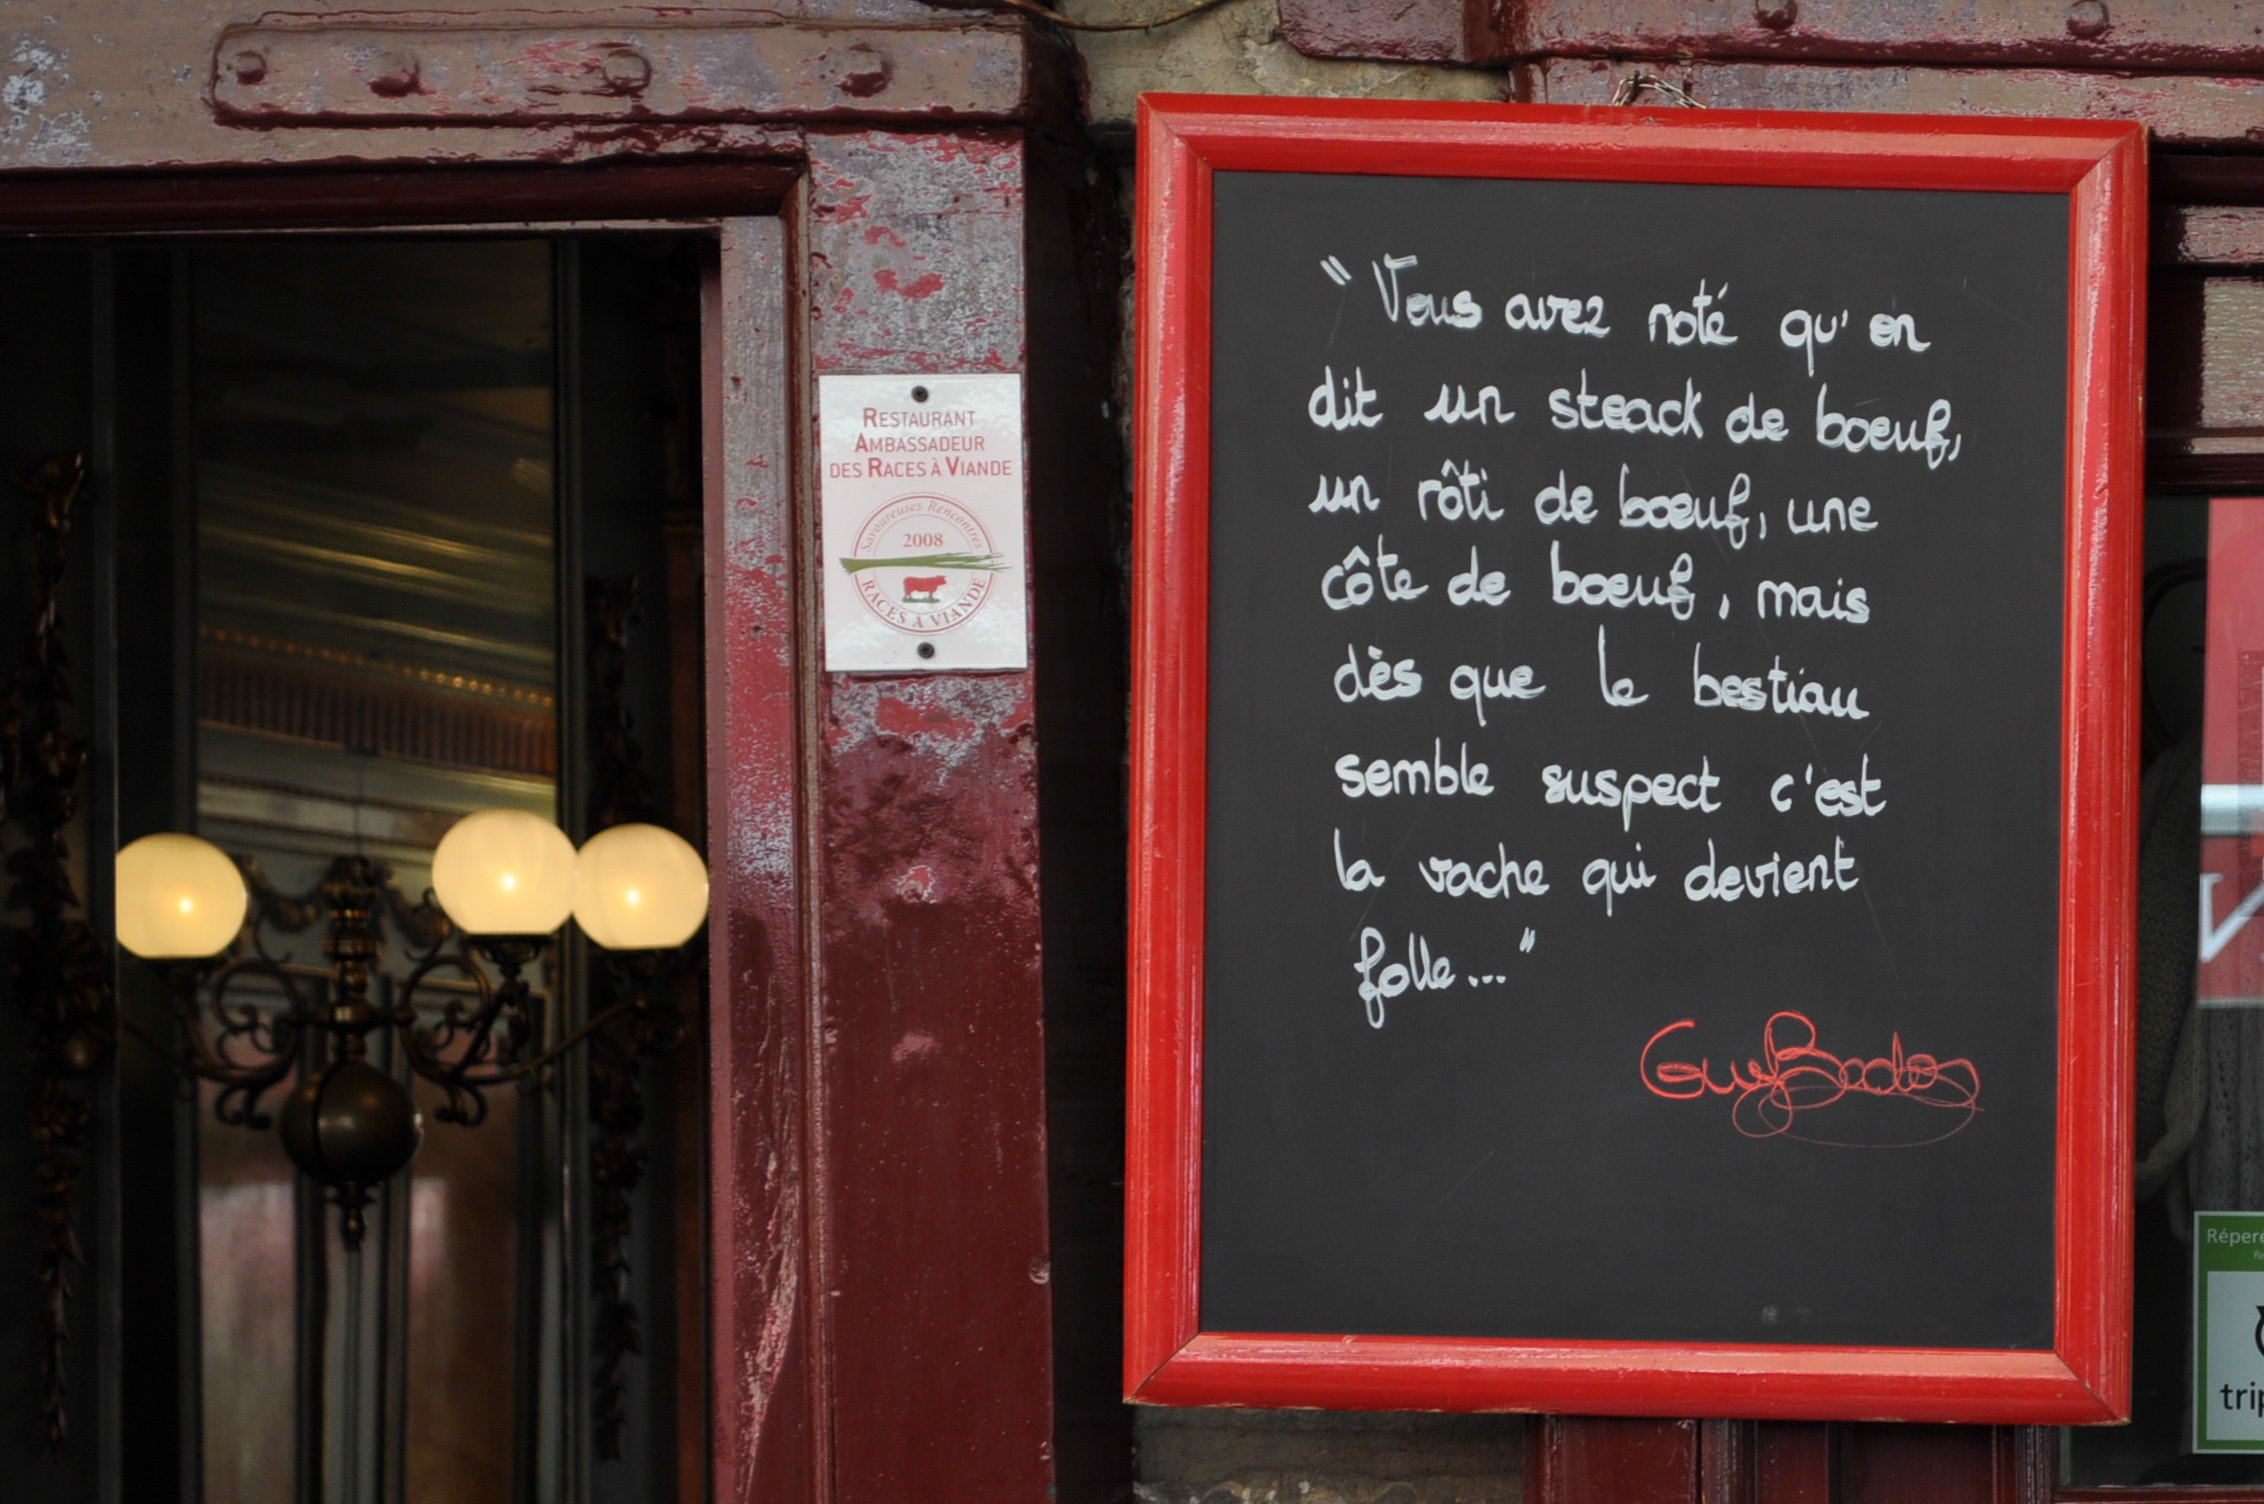 RESTAURANT
AMBASSADEUR
DES RACES À VIANDE
Savoureuses Rencontres
2008
RACES À VIANDE
"Vous avez noté qu'on
dit un steack de boeuf,
un rôti de boeuf, une
côte de boeuf, mais
dès que le bestiau
semble suspect c'est
la vache qui devient
folle..."
Guy Bedos